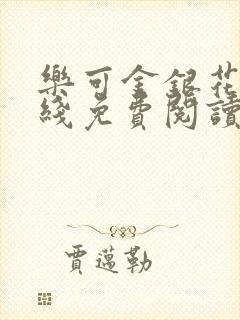 樂可金銀花
綫免費閱讀
賈邁勒